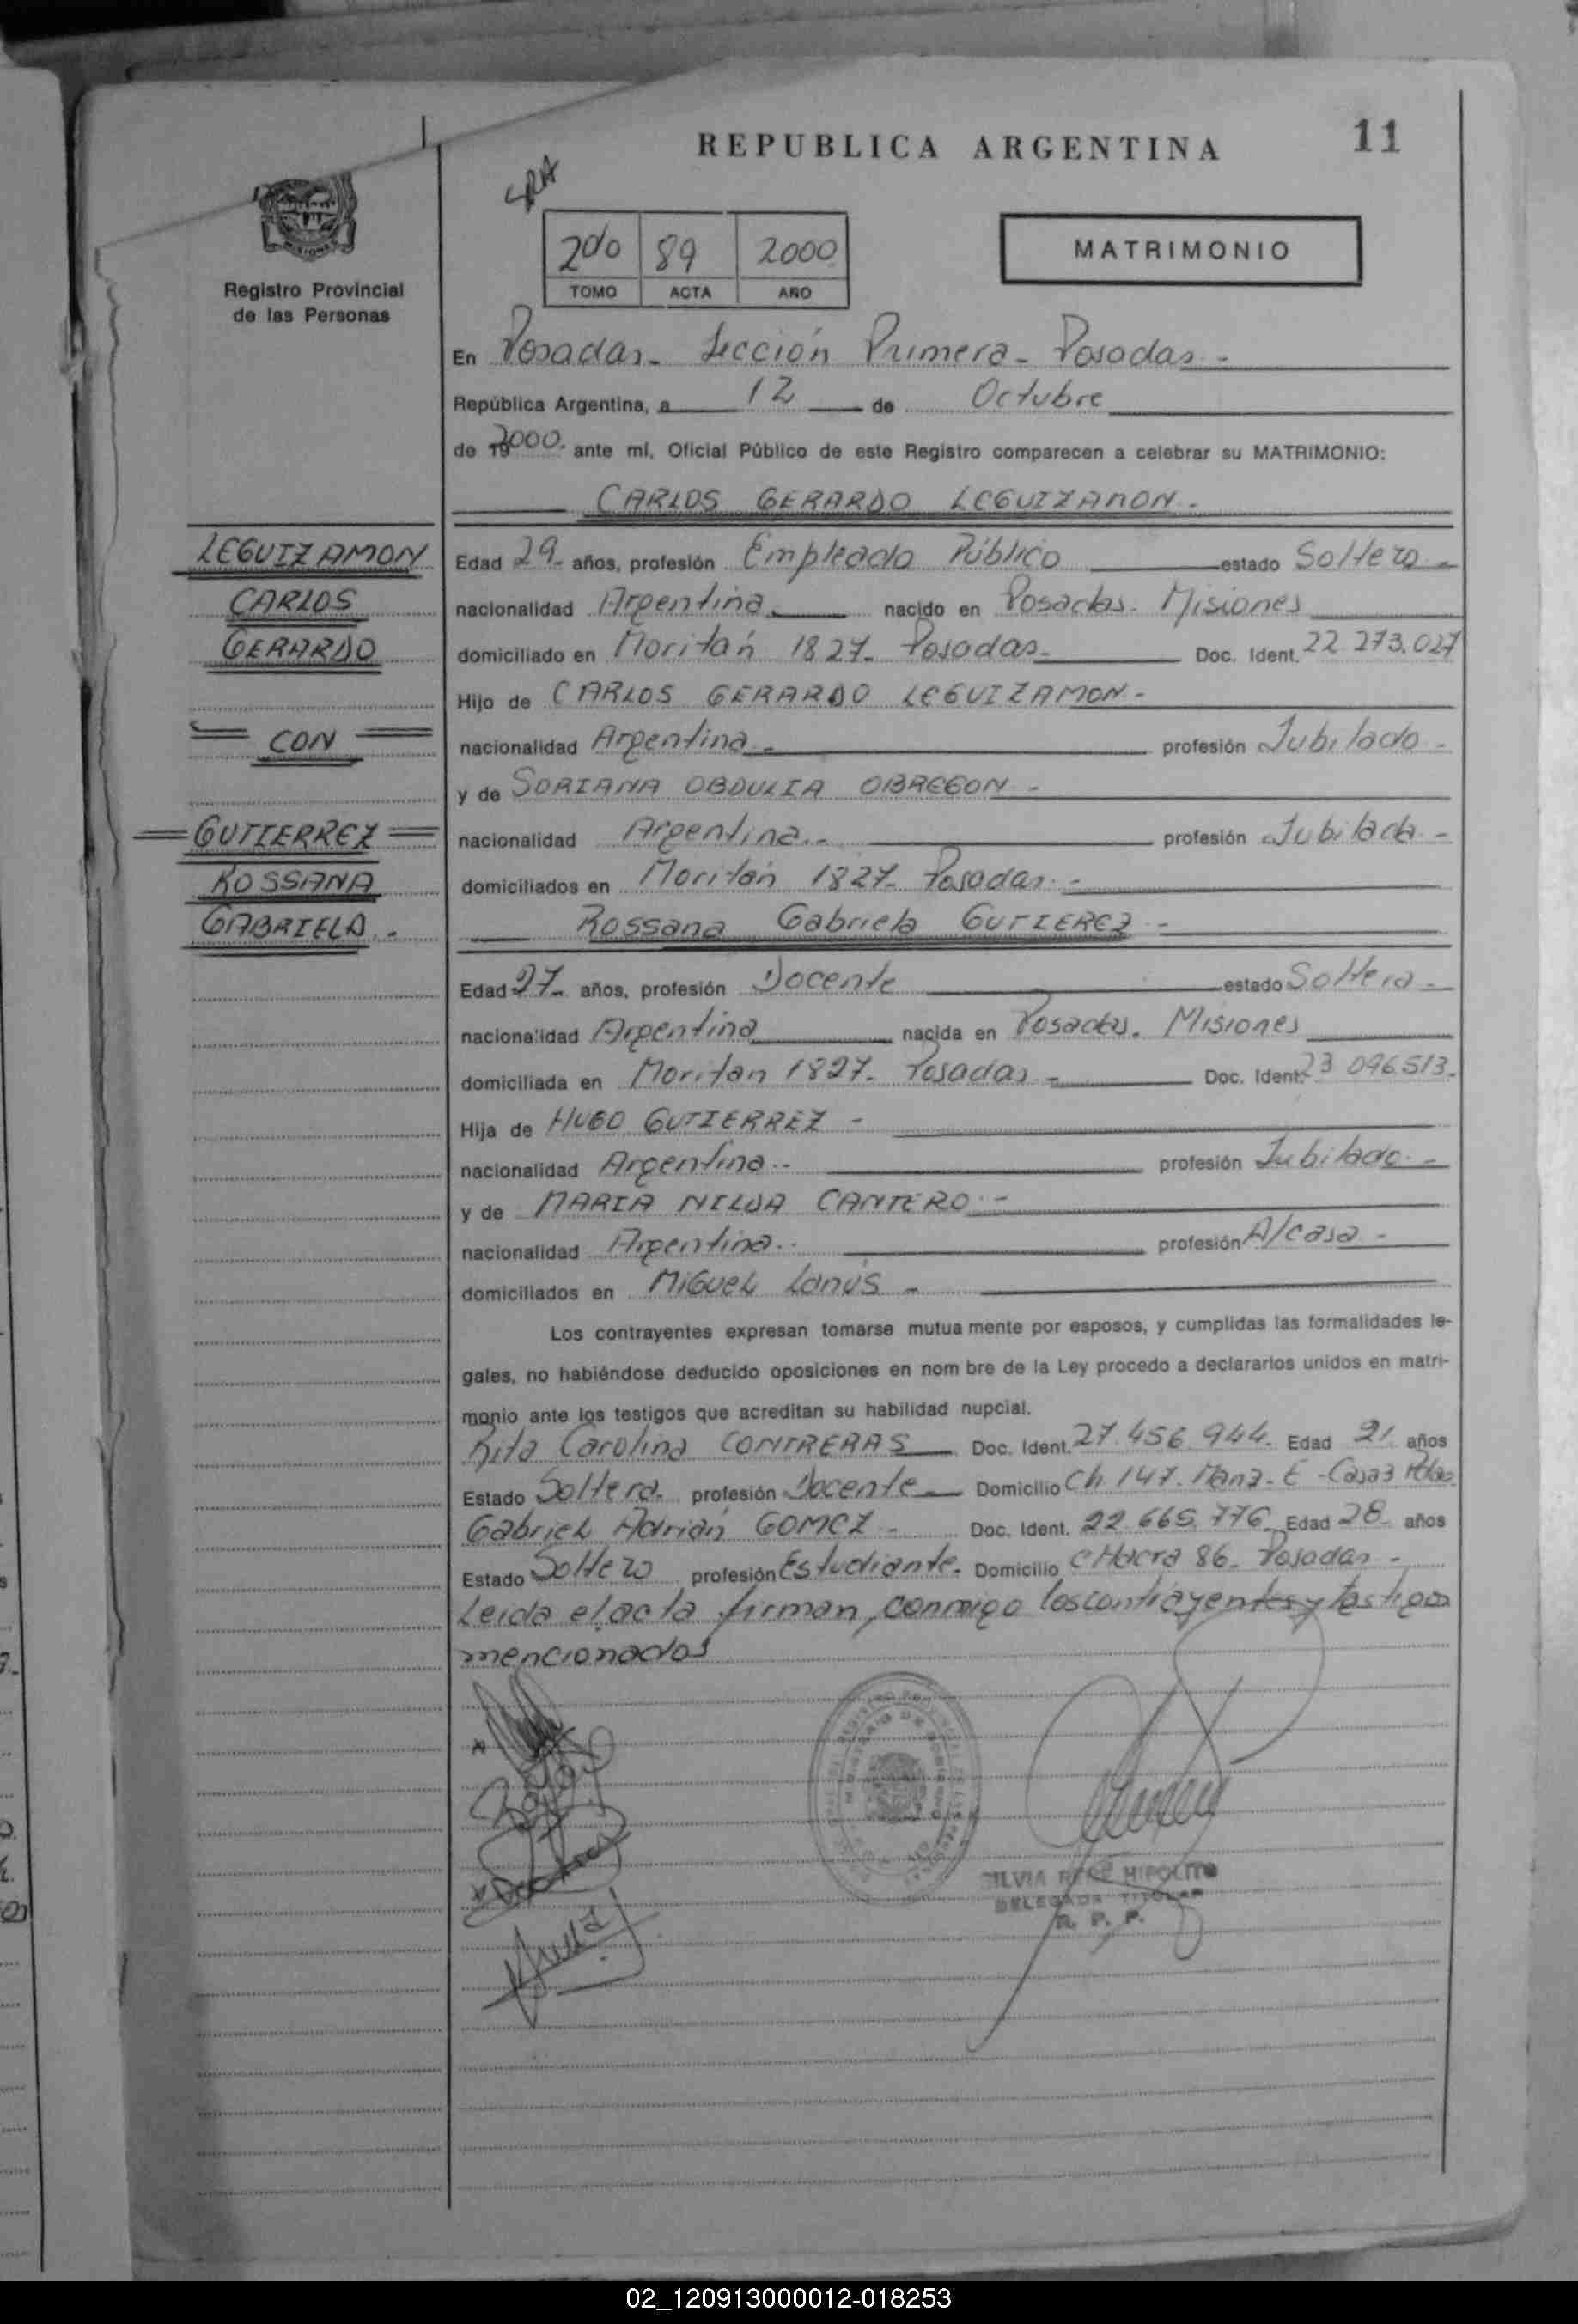 REPUBLICA ARGENTINA
11
SRA
MISIONES
Registro Provincial
de las Personas
2do 89 2000
TOMO ACTA AÑO
MATRIMONIO
En Posadas - Sección Primera - Posadas -
República Argentina, a 12 de Octubre
de 2000. ante mí, Oficial Público de este Registro comparecen a celebrar su MATRIMONIO:
CARLOS GERARDO LEGUIZAMON -
LEGUIZAMON
CARLOS
GERARDO
CON
GUTIERREZ
ROSSANA
GABRIELA -
Edad 29- años, profesión Empleado Público estado Soltero -
nacionalidad Argentina nacido en Posadas. Misiones
domiciliado en Moritán 1827- Posadas- Doc. Ident. 22 273.027
Hijo de CARLOS GERARDO LEGUIZAMON -
nacionalidad Argentina - profesión Jubilado -
y de SORIANA OBDULIA OBREGON -
nacionalidad Argentina.- profesión Jubilada -
domiciliados en Moritán 1827- Posadas. -
Rossana Gabriela GUTIEREZ -
Edad 27- años, profesión Docente estado Soltera -
nacionalidad Argentina nacida en Posadas. Misiones
domiciliada en Moritan 1827- Posadas - Doc. Ident. 23 096.513.
Hija de HUGO GUTIERREZ -
nacionalidad Argentina.- profesión Jubilado -
y de MARIA NILDA CANTERO. -
nacionalidad Argentina.. profesión A/casa -
domiciliados en MiGUEL Lanús -
Los contrayentes expresan tomarse mutua mente por esposos, y cumplidas las formalidades le-
gales, no habiéndose deducido oposiciones en nom bre de la Ley procedo a declararlos unidos en matri-
monio ante los testigos que acreditan su habilidad nupcial.
Rita Carolina CONTRERAS Doc. Ident. 27.456.944. Edad 21 años
Estado Soltera. profesión Docente - Domicilio Ch. 147. Manz. E - Casa 3 Pdas
Gabriel Adrián GOMEZ - Doc. Ident. 22.665.776 Edad 28- años
Estado Soltero profesión Estudiante. Domicilio CHacra 86- Posadas -
Leida el acta firman, conmigo los contrayentes y testigos
mencionados
SILVIA PERE HIPOLITO
DELEGADA TITULAR
R. P. P.
02_120913000012-018253